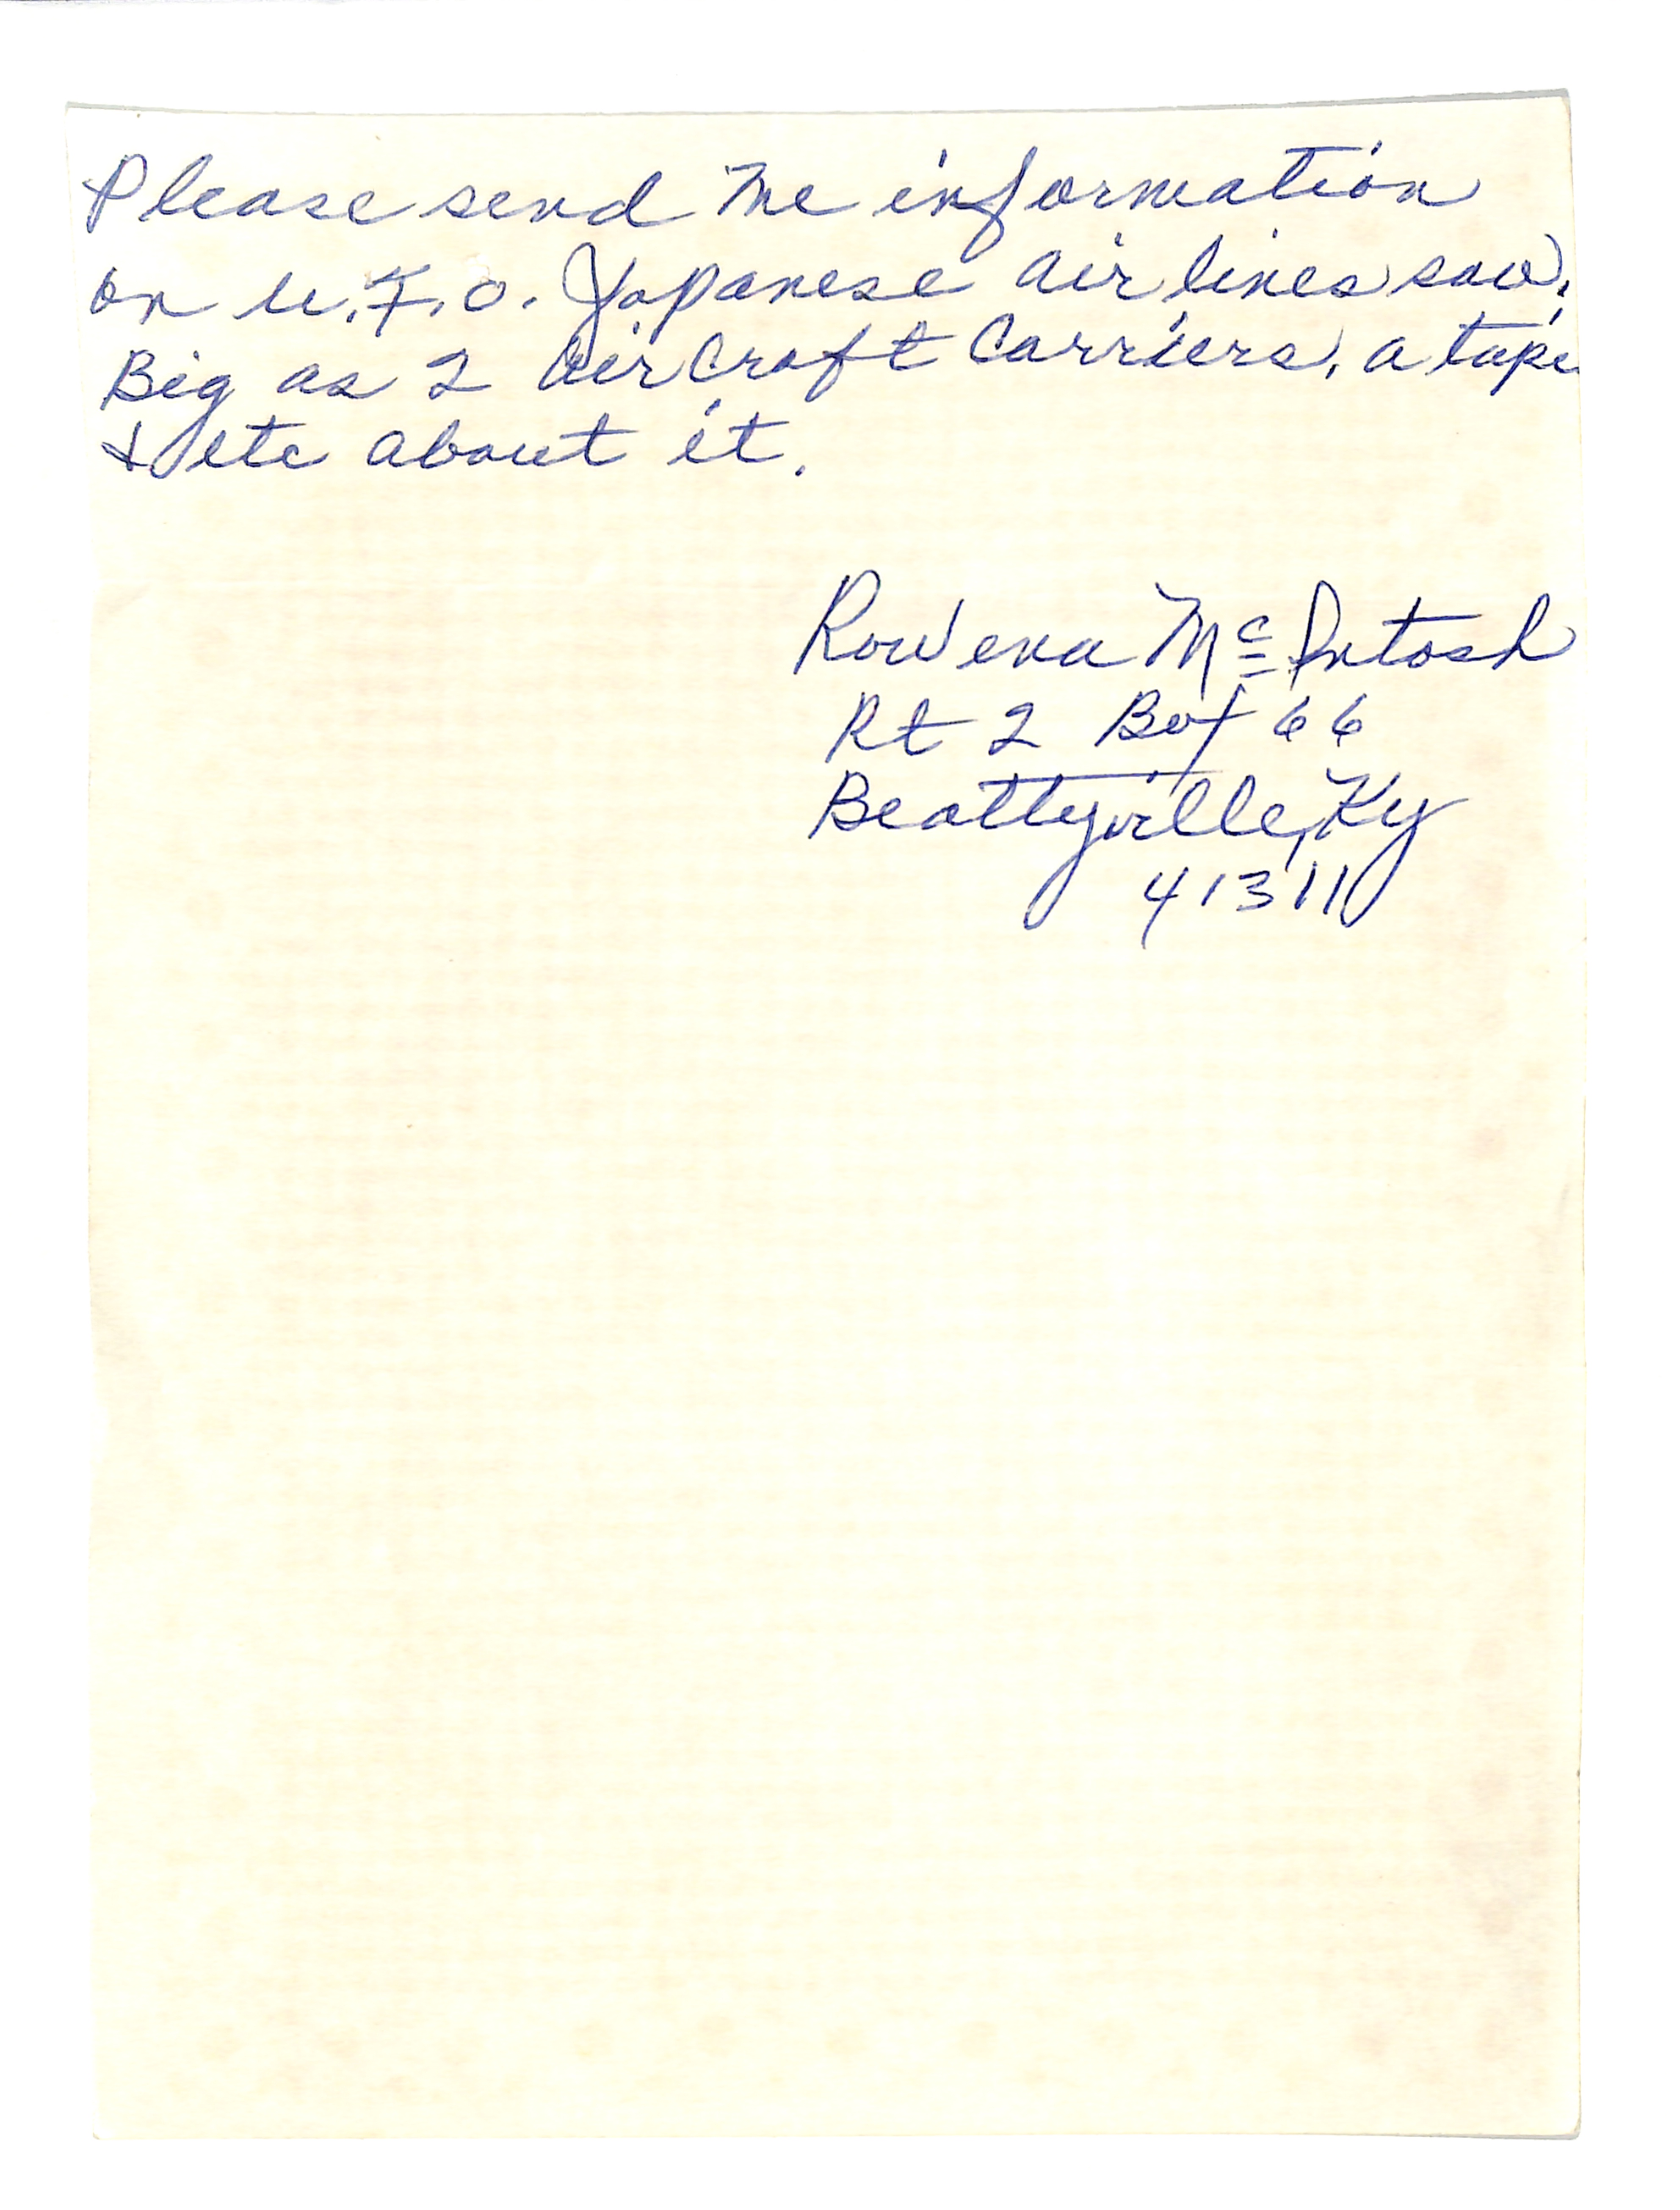 Please send me information
on U.F.O. Japanese air lines saw.
Big as 2 Air Craft Carriers, a tape
& etc about it.
Rowena McIntosh
Rt 2 Box 66
Beattyville, Ky
41311